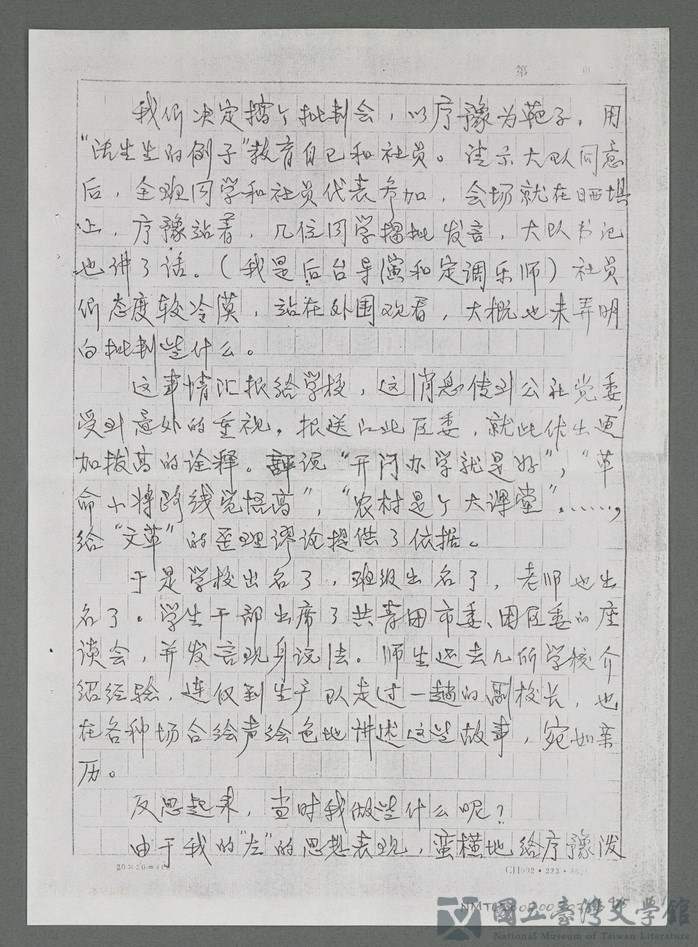 第 页
我们决定搞个批判会，以序豫为靶子，用
“活生生的例子”教育自已和社员。请示大队同意
后，全班同学和社员代表参加，会场就在晒坝
上，序豫站着，几位同学揭批发言，大队书记
也讲了话。（我是后台导演和定调乐师）社员
们态度较冷漠，站在外围观看，大概也未弄明
白批判些什么。
这事情汇报给学校，这消息传到公社党委，
受到意外的重视。报送江北区委，就此作出更
加拔高的诠释。说“开门办学就是好”，“革
命小将路线觉悟高”，“农村是个大课堂”……，
给“文革”的歪理谬论提供了依据。
于是学校出名了，班级出名了，老师也出
名了。学生干部出席了共青团市委、团区委的座
谈会，并发言现身说法。师生还去几所学校介
绍经验，连仅到生产队走过一趟的副校长，也
在各种场合绘声绘色地讲述这些故事，宛如亲
历。
反思起来，当时我做些什么呢？
由于我的“左”的思想表现，蛮横地给序豫泼
20×20=400
CH002·223·
國立臺灣文學館
National Museum of Taiwan Literature